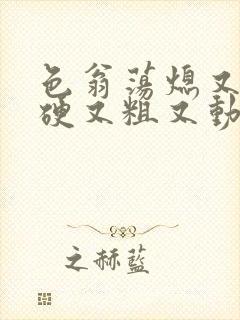 色翁荡熄又
硬又粗又動
之赫蓝